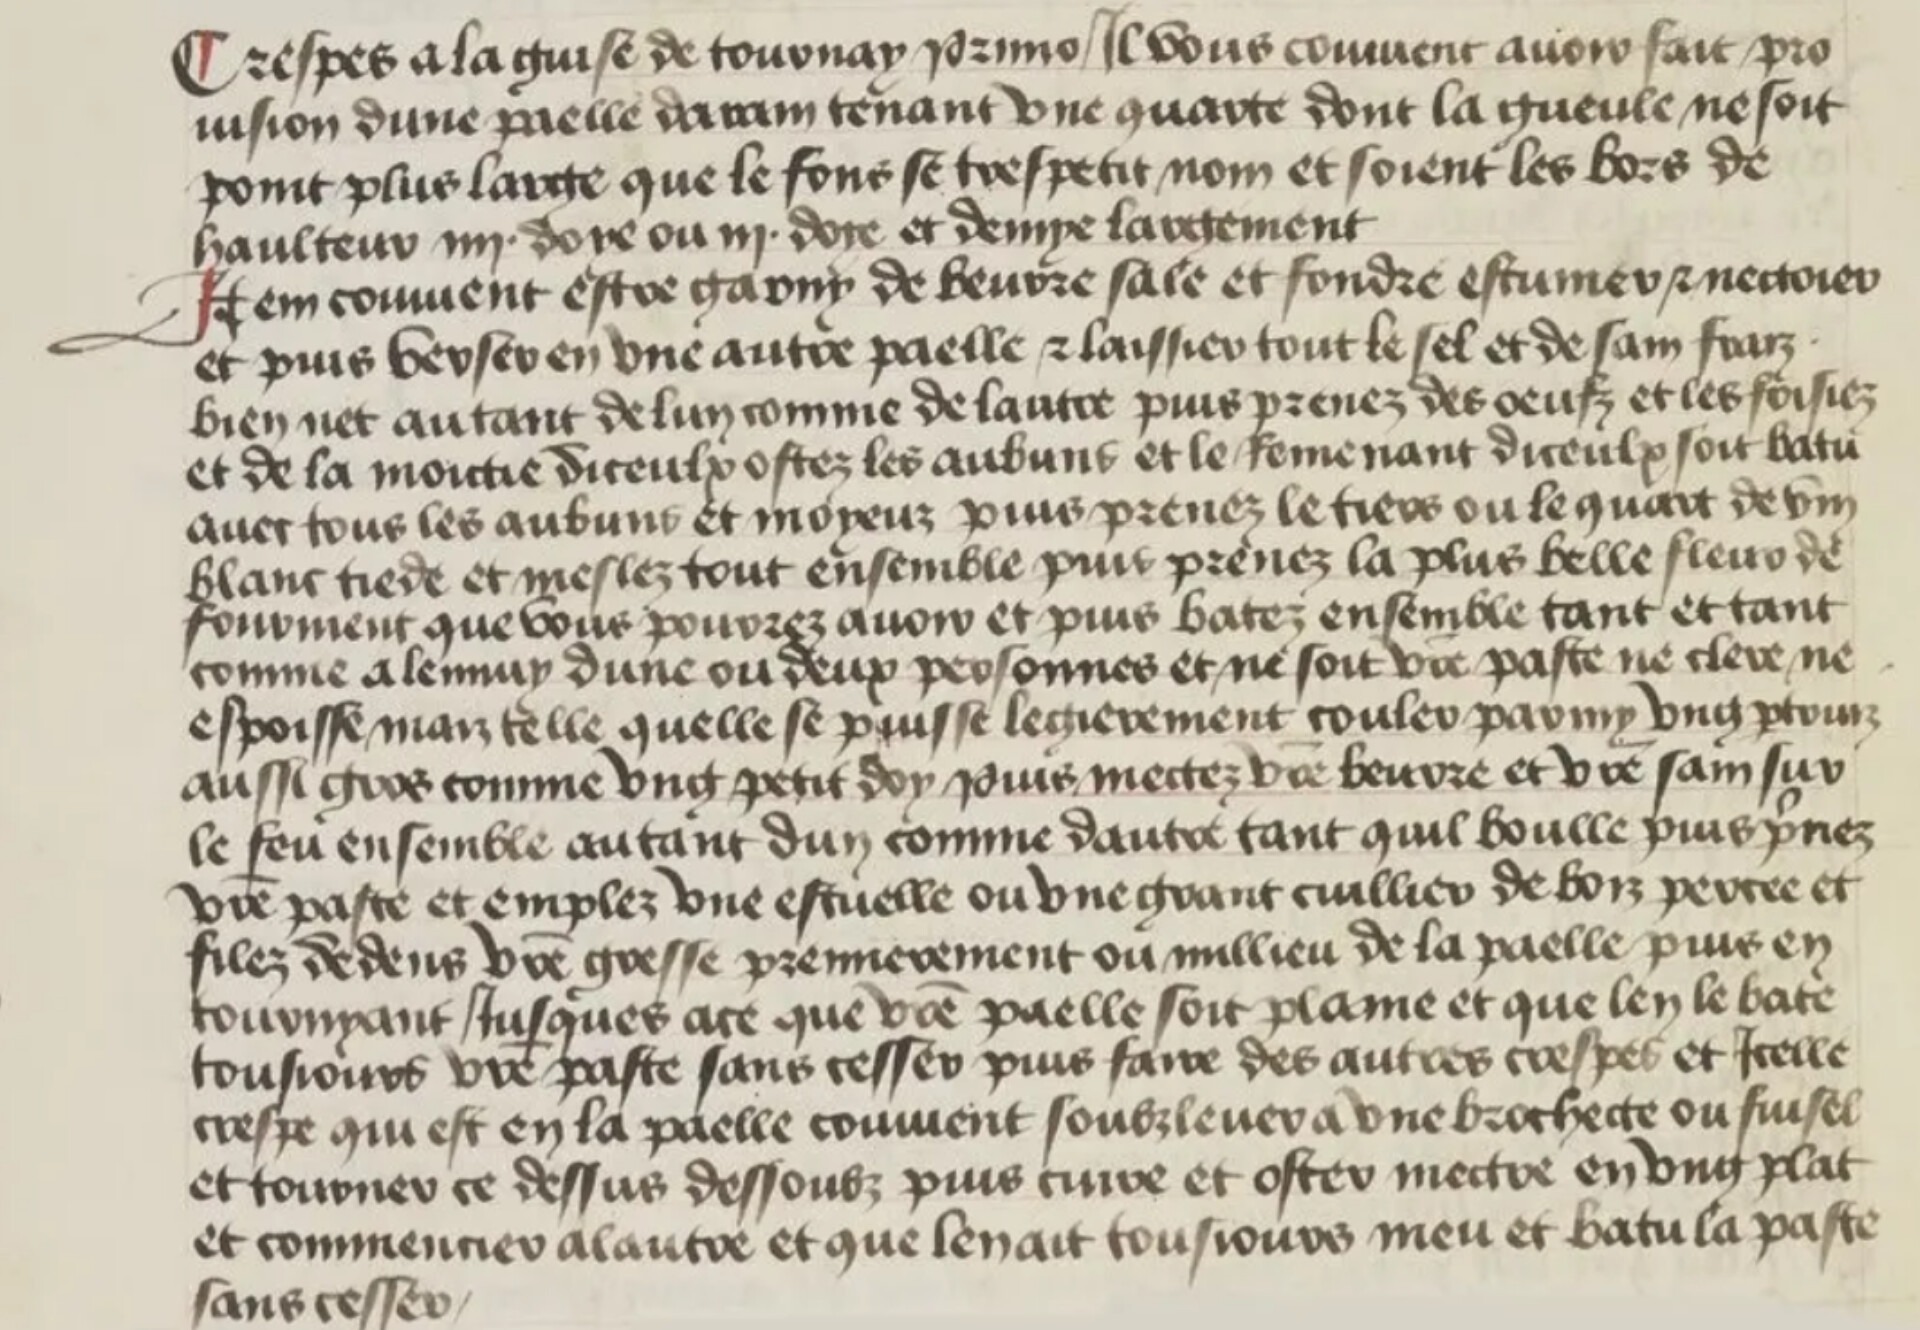 Crespes a la guise de tournay primo / Il vous convient avoir fait pro
vision dune paelle darain tenant vne quarte dont la gueule ne soit
point plus large que le fons se trespetit nom et soient les bors de
haulteur iiij. dois ou iij. dois et demye largement
Item convient estre garny de beurre sale et fondre escumer ⁊ nectoier
et puis verser en vne autre paelle ⁊ laissier tout le sel et de sain fraiz .
bien net autant de lun comme de lautre puis prenez des oeufz et les
et de la moictie diceulx ostez les aubuns et le Remenant diceulx soit batu
avec tous les aubuns et moyeux puis prenez le tiers ou le quart de vin
blanc tiede et meslez tout ensemble puis prenez la plus belle fleur de
fourment que vous pourrez avoir et puis batez ensemble tant et tant
comme a lennuy dune ou deux personnes et ne soit vr̄e paste ne clere ne
espoisse maiz telle quelle se puisse legierement couler parmy vng ptruiz
aussi gros comme vng petit doy puis mectez vr̄e beurre et vr̄e sain sur
le feu ensemble autant dun comme dautre tant quil boulle puis pr̄nez
vr̄e paste et emplez vne escuelle ou vne grant cuillier de boiz percee et
filez dedens vr̄e gresse premierement ou millieu de la paelle puis en
tournyant Jusques ace que vr̄e paelle soit plaine et que len le bate
tousiours vr̄e paste sans cesser puis faire des autres crespes et Icelle
crespe qui est en la paelle convient soubzlever a vne brochecte ou fuisel
et tourner ce dessus dessoubz puis cuire et oster mectre en vng plat
et commencier alautre et que lenait tousiours meu et batu la paste
sans cesser /